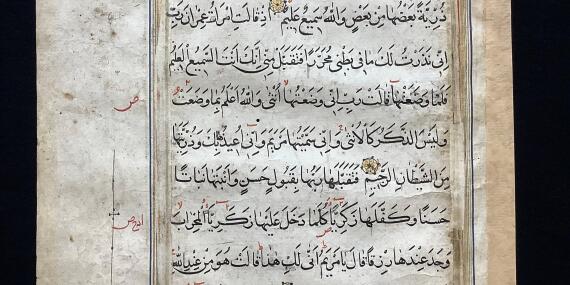 ذُرِّيَّةً بَعْضُهَا مِنْ بَعْضٍ وَاللَّهُ سَمِيعٌ عَلِيمٌ اِذْ قَالَتِ امْرَاَتُ عِمْرَانَ رَبِّ
اِنِّى نَذَرْتُ لَكَ مَا فِى بَطْنِى مُحَرَّرًا فَتَقَبَّلْ مِنِّى اِنَّكَ اَنْتَ السَّمِيعُ الْعَلِيمُ
فَلَمَّا وَضَعَتْهَا قَالَتْ رَبِّ اِنِّى وَضَعْتُهَا اُنْثٰى وَاللَّهُ اَعْلَمُ بِمَا وَضَعَتْ
وَلَيْسَ الذَّكَرُ كَالْاُنْثٰى وَاِنِّى سَمَّيْتُهَا مَرْيَمَ وَاِنِّى اُعِيذُهَا بِكَ وَذُرِّيَّتَهَا
ص
مِنَ الشَّيْطَانِ الرَّجِيمِ فَتَقَبَّلَهَا رَبُّهَا بِقَبُولٍ حَسَنٍ وَاَنْبَتَهَا نَبَاتًا
حَسَنًا وَكَفَّلَهَا زَكَرِيَّا كُلَّمَا دَخَلَ عَلَيْهَا زَكَرِيَّا الْمِحْرَابَ
وَجَدَ عِنْدَهَا رِزْقًا قَالَ يَا مَرْيَمُ اَنّٰى لَكِ هٰذَا قَالَتْ هُوَ مِنْ عِنْدِ اللَّهِ